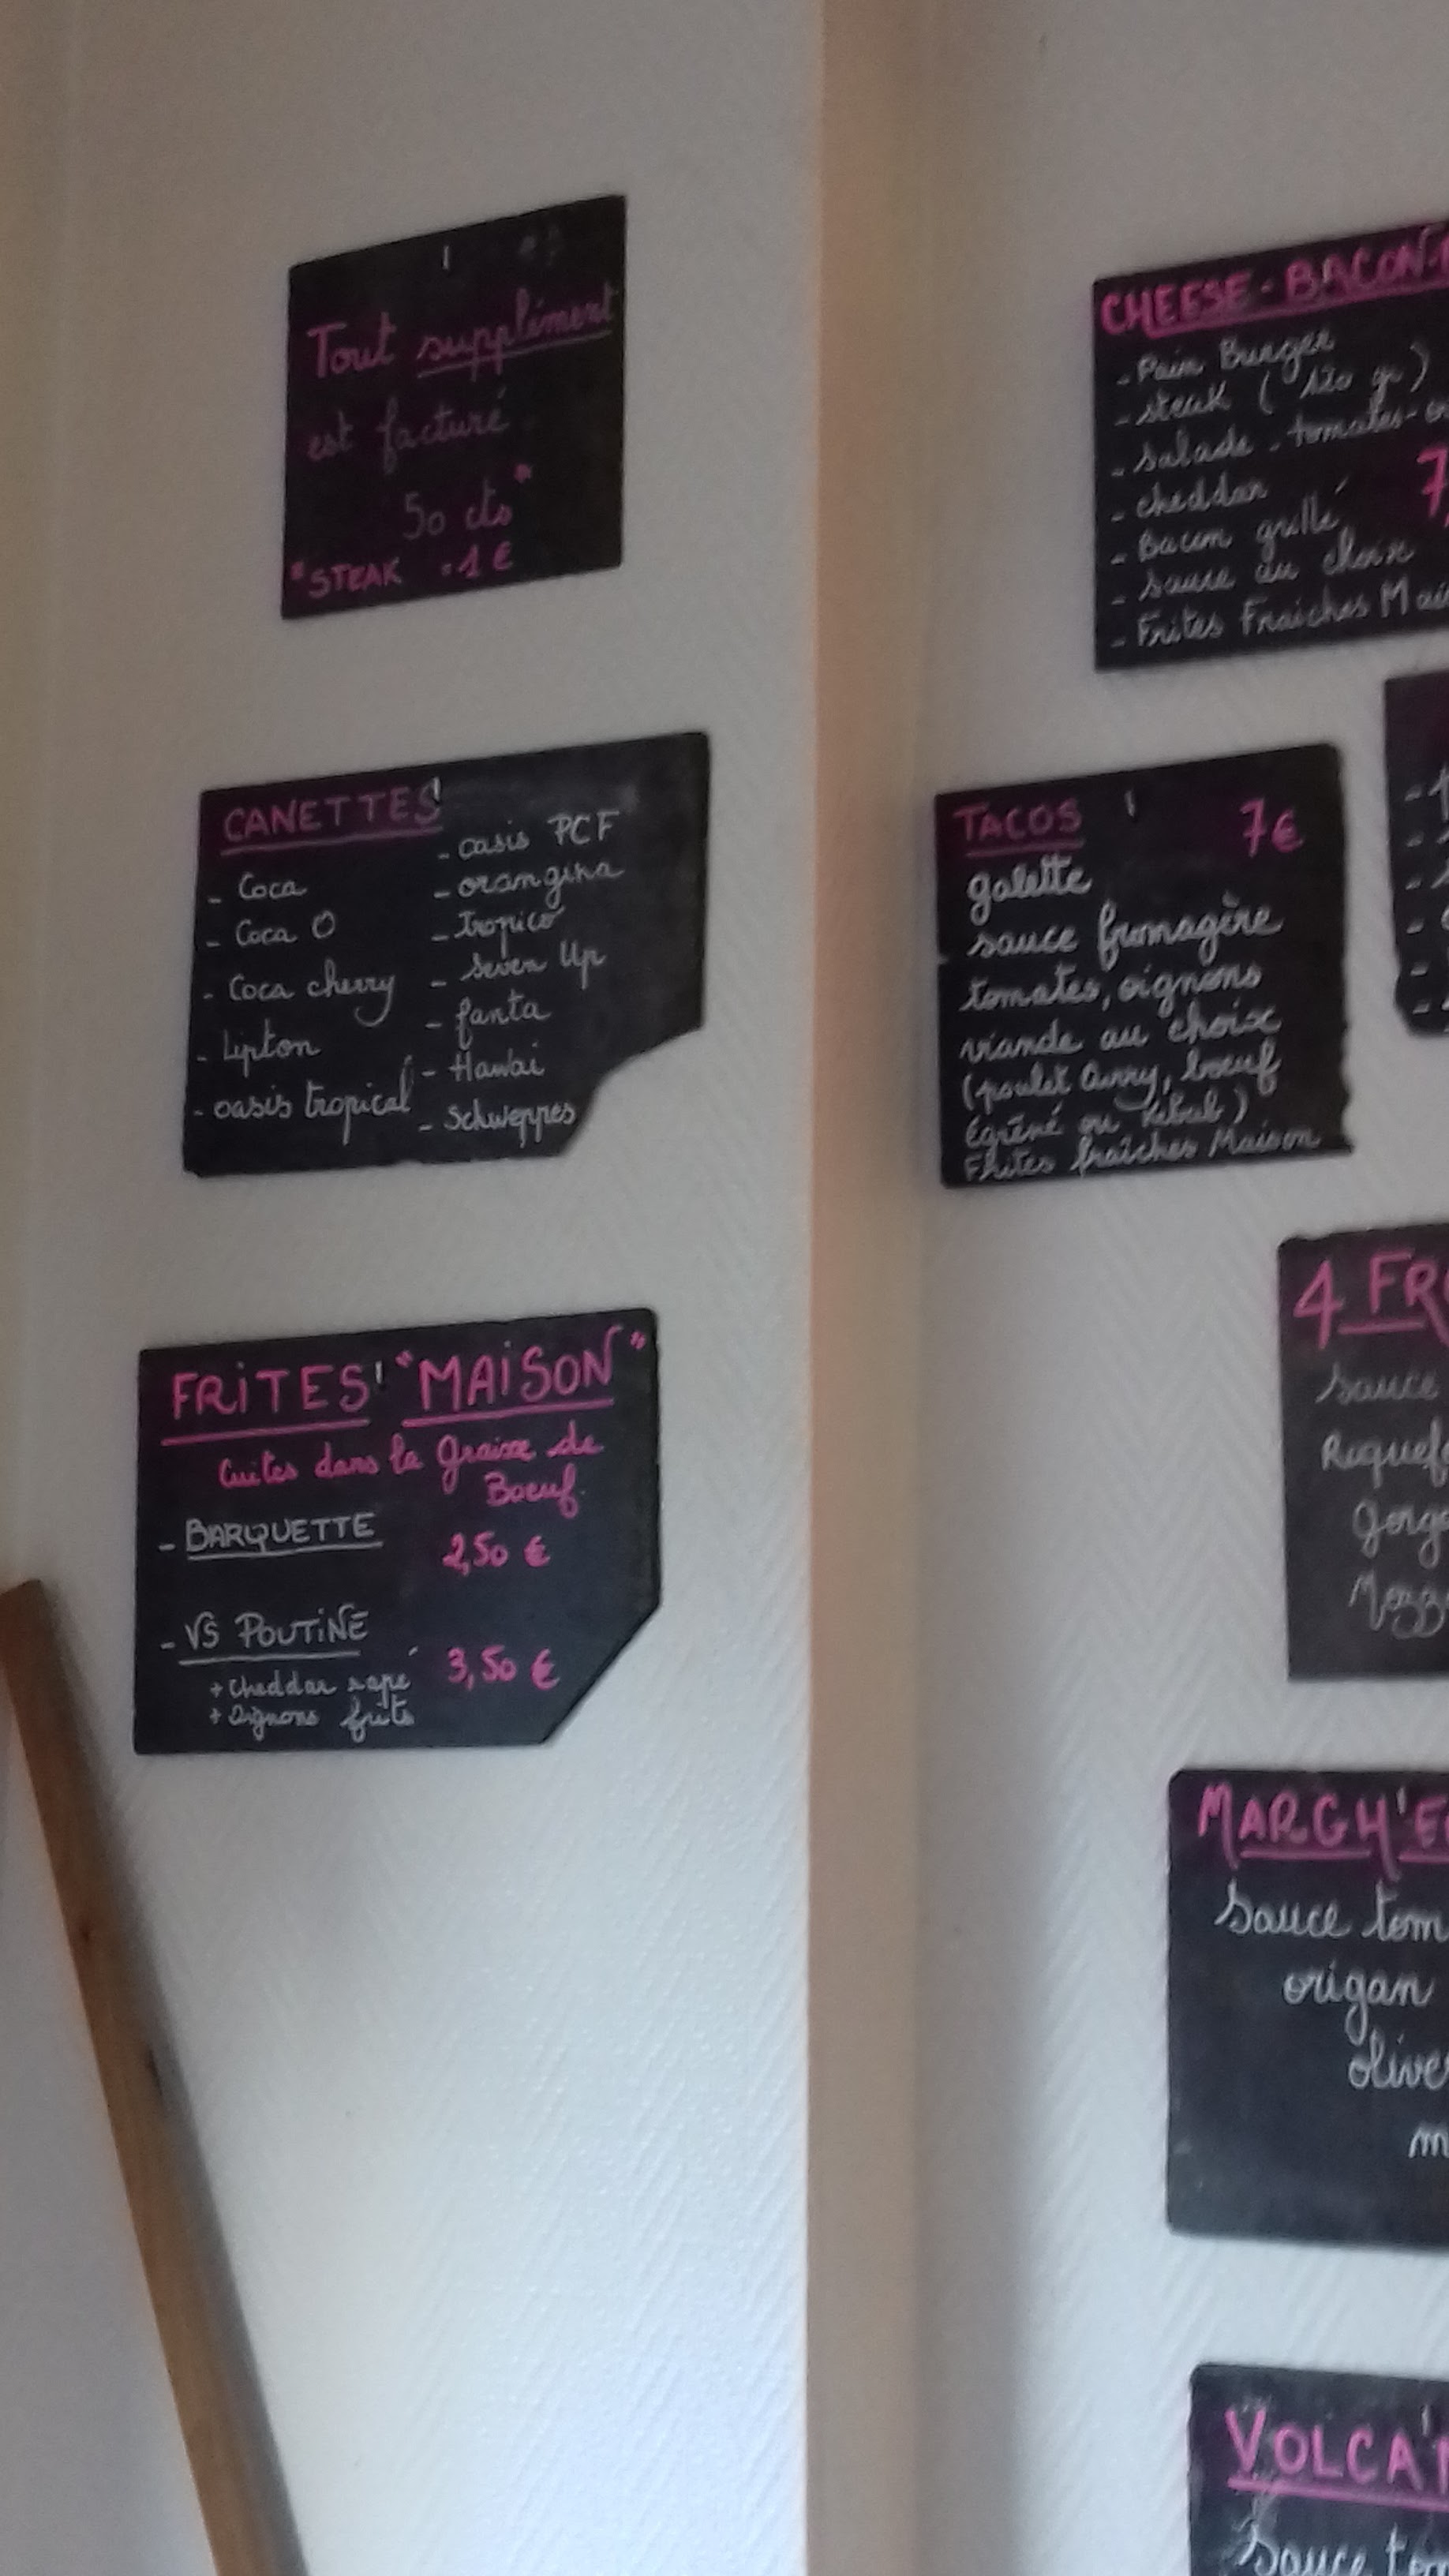 Tout supplément
est facturé
50 cts*
*STEAK = 1 €
CANETTES
- Coca
- Coca O
- Coca cherry
- Lipton
- oasis tropical
- oasis PCF
- orangina
- Tropico
- Seven Up
- fanta
- Hawai
- Schweppes
FRITES "MAISON"
Cuites dans la Graisse de
Boeuf
- BARQUETTE 2,50 €
- VS POUTINE
3,50 €
+ Cheddar rapé
+ Oignons frits
CHEESE-BACON
- Pain Burger
- steak (120 gr)
- salade - tomates-
- cheddar
- Bacon grillé
- sauce au choix
- Frites Fraiches
TACOS 7€
galette
sauce fromagère
tomates, oignons
viande au choix
(poulet Curry, boeuf
égréné ou Kebab)
Frites fraîches Maison
4 FR
sauce
Roquef
Gorgo
Mozz
MARGH'E
Sauce tom
origan
olive
m
VOLCA'
Sauce to